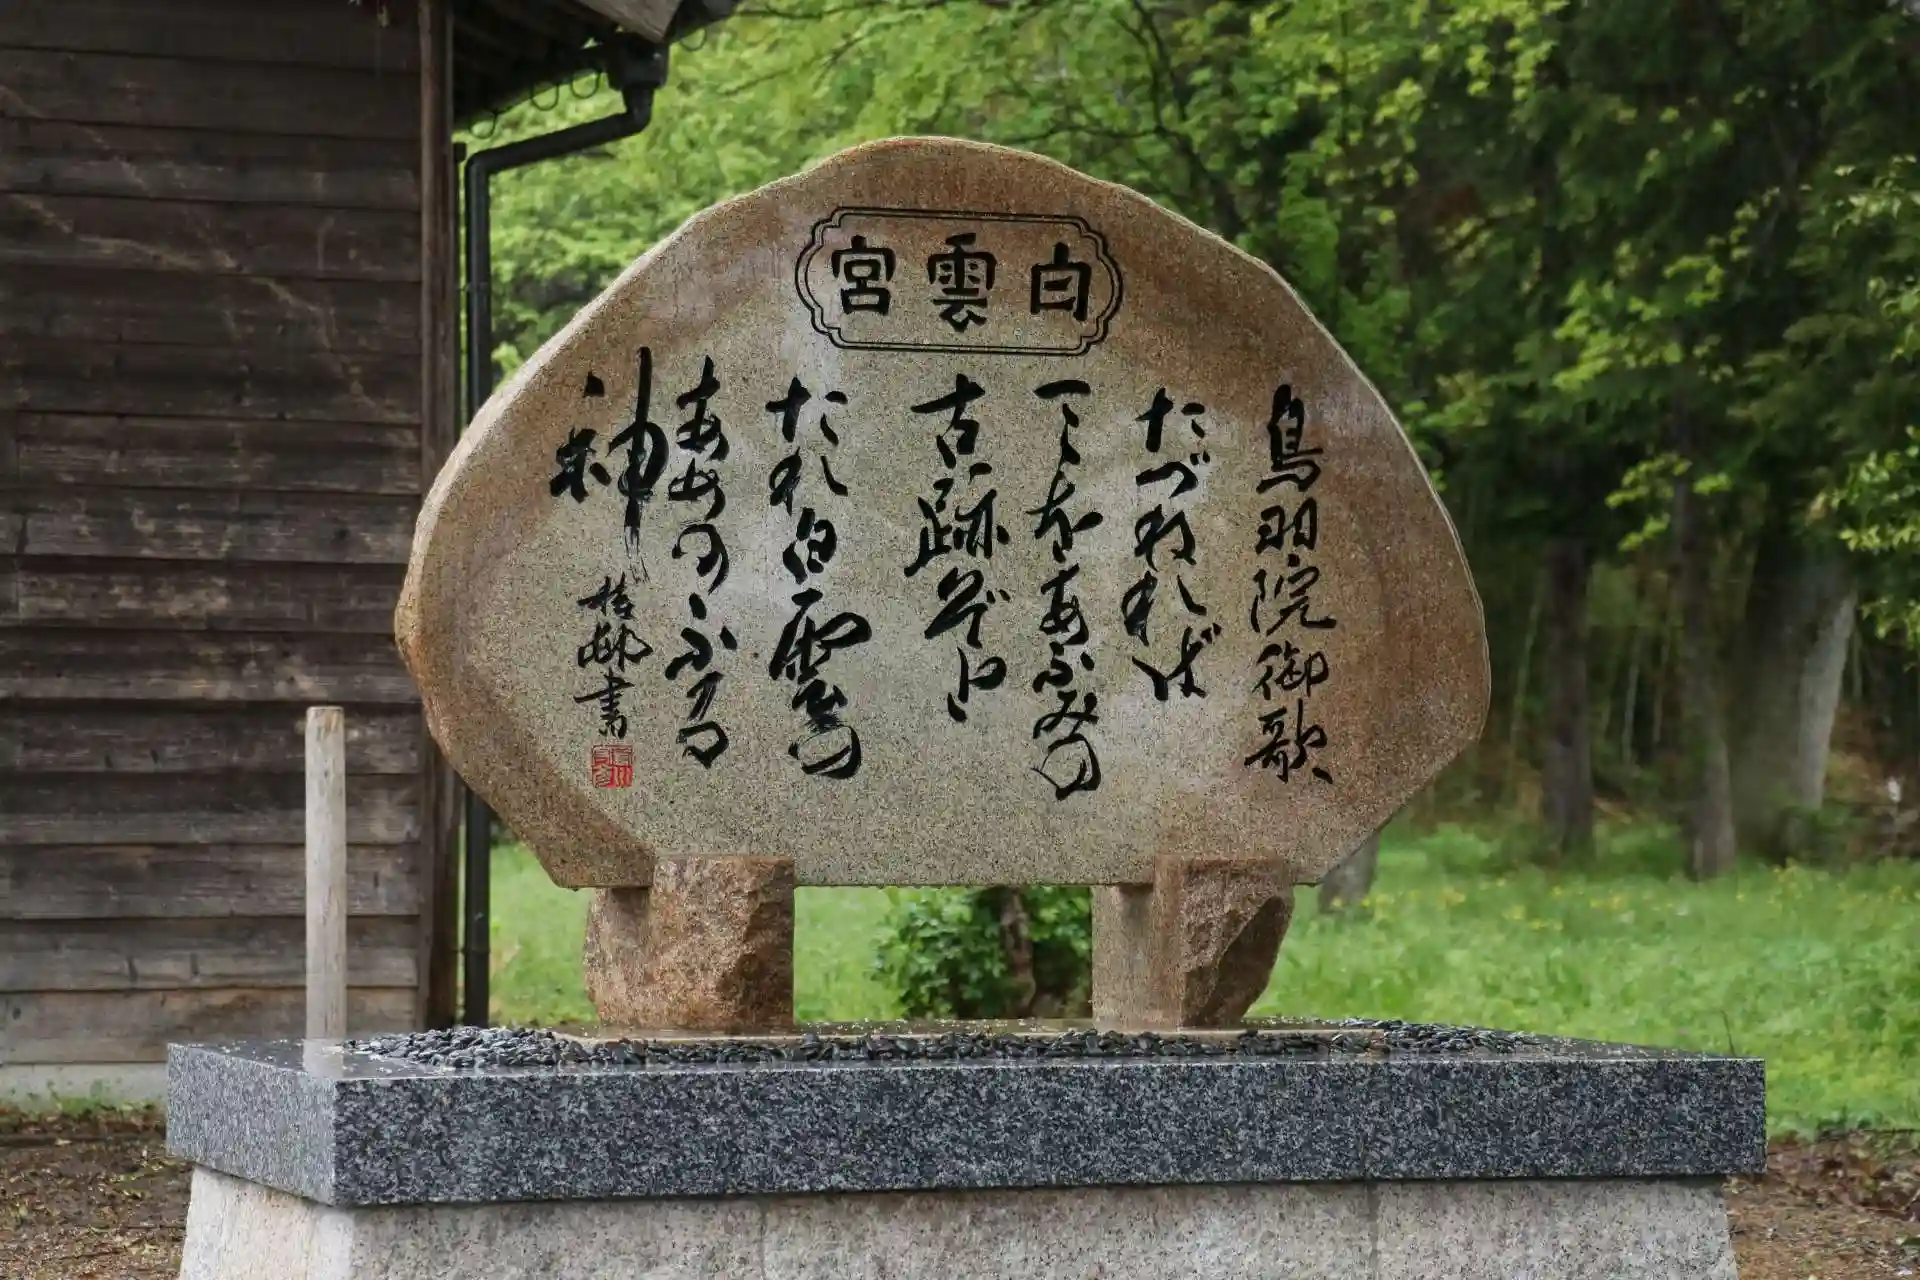 白雲宮
鳥羽院御歌
たづねれば
こゝをあふみの
古跡ぞと
たれ白雲の
あめのふる
神
書